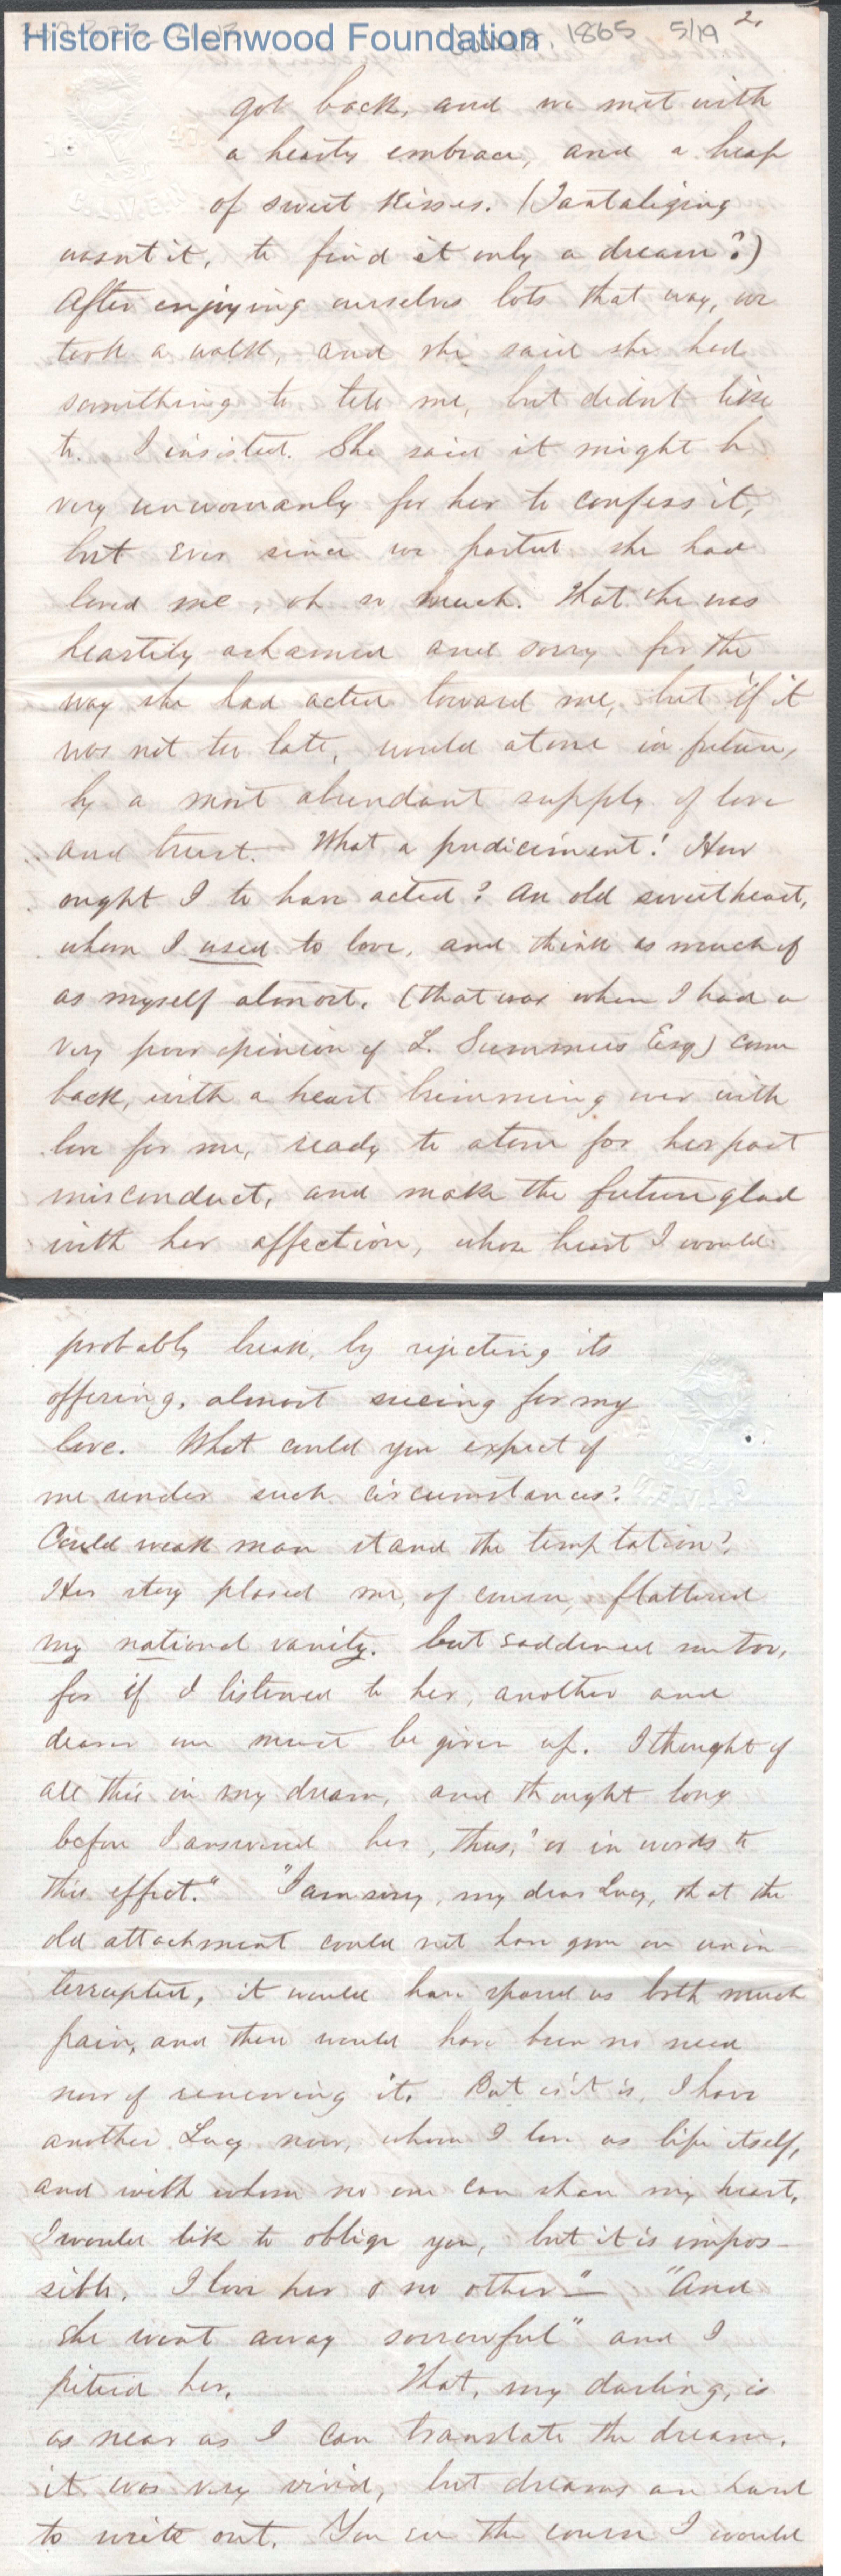 Historic Glenwood Foundation 1865 5/19 2.
got back, and we met with
a hearty embrace, and a heap
of sweet kisses. (Tantalizing
wasnt it, to find it only a dream?)
After enjoying ourselves lots that way, we
took a walk, and she said she had
something to tell me, but didnt like
to. I insisted. She said it might be
very unwomanly for her to confess it,
but ever since we parted she had
loved me, oh so much. That she was
heartily ashamed and sorry for the
way she had acted toward me, but if it
was not too late, would atone in future,
by a most abundant supply of love
and trust. What a prediciment! How
ought I to have acted? An old sweetheart,
whom I used to love, and think as much of
as myself almost. (that was when I had a
very poor opinion of L. Summers Esq) come
back, with a heart brimming over with
love for me, ready to atone for her past
misconduct, and make the future glad
with her affection, whose heart I would
probably break, by rejecting its
offering, almost sueing for my
love. What could you expect of
me under such circumstances?
Could weak man stand the temptation?
Her story plased me, of course, flattered
my national vanity. but saddened me too,
for if I listened to her, another and
dearer one must be given up. I thought of
all this in my dream, and thought long
before I answered her, thus, "or in words to
this effect." "I am sorry, my dear Lucy, that the
old attachment could not have gone on unin-
terrupted, it would have spared us both much
pain, and there would have been no need
now of renewing it. But as it is, I have
another Lucy now, whom I love as life itself,
and with whom no one can share my heart.
I would like to oblige you, but it is impos-
sible. I love her & no other" — "And
she went away sorrowful" and I
pitied her. That, my darling, is
as near as I can translate the dream.
it was very vivid, but dreams are hard
to write out. You see the course I would